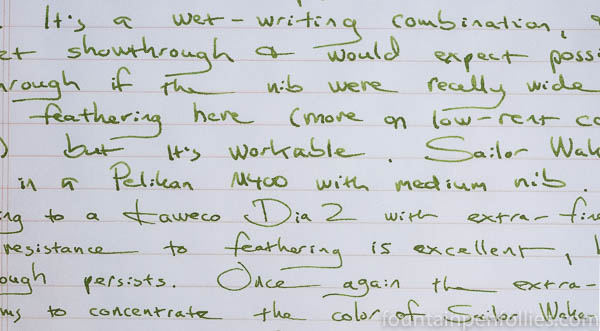 It's a wet-writing combination,
showthrough & would expect possi
rough if the nib were really wide
feathering here (more on low-rent co
) but it's workable. Sailor Wak
in a Pelikan M400 with medium nib.
ng to a Kaweco Dia 2 with extra-fine
resistance to feathering is excellent,
ough persists. Once again the extra-
ms to concentrate the color of Sailor Wake-
fountainpenfollies.com